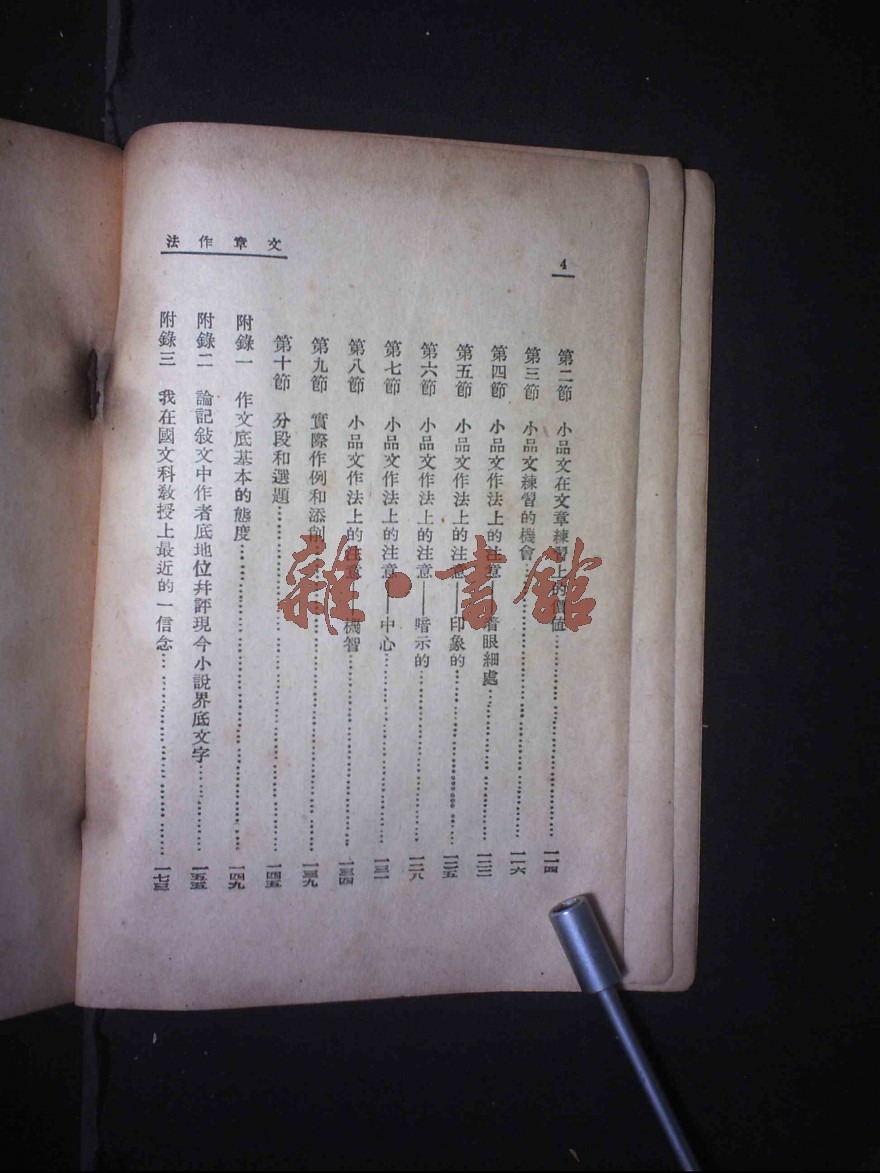 文章作法
4
第二節　小品文在文章練習上的價值……一一四
第三節　小品文練習的機會……一一六
第四節　小品文作法上的注意——着眼細處……一二二
第五節　小品文作法上的注意——印象的……一二五
第六節　小品文作法上的注意——暗示的……一二八
第七節　小品文作法上的注意——中心……一三一
第八節　小品文作法上的注意——機智……一三四
第九節　實際作例和添削……一三九
第十節　分段和選題……一四五
附錄一　作文底基本的態度……一四九
附錄二　論記敍文中作者底地位幷評現今小說界底文字……一五五
附錄三　我在國文科敎授上最近的一信念……一七三
雜·書館